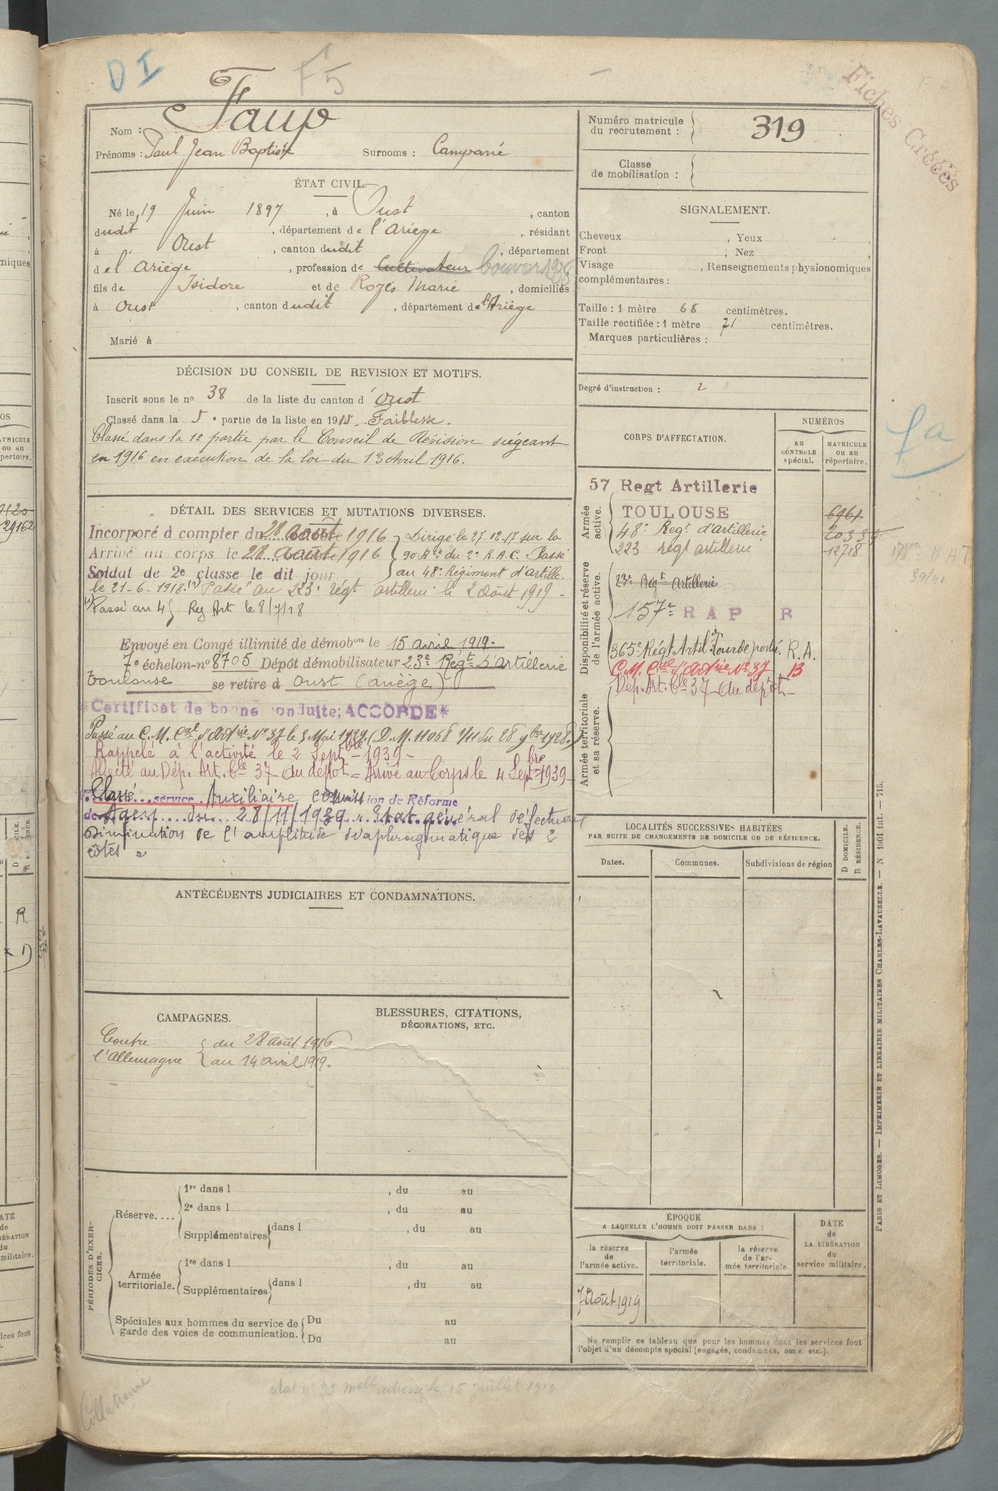 DI
F5
Fiches Créées
Nom : Faup
Prénoms : Paul Jean Baptiste Surnoms : Camparié
Numéro matricule du recrutement : 319
Classe de mobilisation :
ÉTAT CIVIL.
Né le 19 Juin 1897, à Oust, canton
dudit, département de l'Ariège, résidant
à Oust, canton dudit, département
de l'Ariège, profession de Cultivateur
fils de Isidore et de Rogès Marie, domiciliés
à Oust, canton dudit, département de l'Ariège
Marié à
SIGNALEMENT.
Cheveux , Yeux
Front , Nez
Visage , Renseignements physionomiques
complémentaires :
Taille : 1 mètre 68 centimètres.
Taille rectifiée : 1 mètre 71 centimètres.
Marques particulières :
Degré d'instruction : 2
DÉCISION DU CONSEIL DE REVISION ET MOTIFS.
Inscrit sous le no 38 de la liste du canton d'Oust
Classé dans la 5e partie de la liste en 1915. Faiblesse.
Classé dans la 1e partie par le Conseil de Révision siégeant
en 1916 en exécution de la loi du 13 Avril 1916.
DÉTAIL DES SERVICES ET MUTATIONS DIVERSES.
Incorporé à compter du 28 août 1916
Arrivé au corps le 28 août 1916
Soldat de 2e classe le dit jour
Dirigé le 27.12.17 sur la
90 Bie du 2e R.A.C. Passé
au 48e Régiment d'artille.
le 21-6-1918. (1) Passé au 223e régt artillerie le 2 août 1919-
(1) Passé au 45 Reg Art le 8/7/18
Envoyé en Congé illimité de démobon le 15 avril 1919.
7e échelon-no 8705 Dépôt démobilisateur 23e Regt d'Artillerie
Toulouse se retire à Oust (Ariège)
*Certificat de bonne conduite; ACCORDÉ*
Passé au C.M. d'Artie No 37 le 5 Mai 1929 (D.M. 11068 1/11 du 28 9bre 1928.)
Rappelé à l'activité le 2 Septbre 1939-
Affecté au Dép. Art. Cle 37- du dépôt - Arrivé au Corps le 4 Septbre 1939-
Classé service Auxiliaire Commission de Réforme
de Agen du 28/11/1939. Etat général défectueux
Diminution de l'amplitude diaphragmatique des 2
côtés
CORPS D'AFFECTATION.
NUMÉROS
AU CONTRÔLE spécial.
MATRICULE ou au répertoire.
Armée active.
57 Regt Artillerie
TOULOUSE
48e Regt d'artillerie
223 régt artillerie 12718
Disponibilité et réserve de l'armée active.
23e Regt Artillerie
157e R A P R
365e Régt Artil Lourde portée. R.A.
C.M. d'Artie No 37 B
Dép. Art. Cle 37- du dépôt-
Armée territoriale et sa réserve.
fa
LOCALITÉS SUCCESSIVES HABITÉES
PAR SUITE DE CHANGEMENTS DE DOMICILE OU DE RÉSIDENCE.
Dates. Communes. Subdivisions de région
D DOMICILE.
R RÉSIDENCE.
ANTÉCÉDENTS JUDICIAIRES ET CONDAMNATIONS.
CAMPAGNES.
Contre l'Allemagne
du 28 août 1916
au 14 avril 1919.
BLESSURES, CITATIONS,
DÉCORATIONS, ETC.
PÉRIODES D'EXERCICES.
Réserve....
1re dans l , du au
2e dans l , du au
Supplémentaires dans l , du au
Armée territoriale.
1re dans l , du au
Supplémentaires dans l , du au
Spéciales aux hommes du service de
garde des voies de communication.
Du au
Du au
ÉPOQUE
A LAQUELLE L'HOMME DOIT PASSER DANS :
la réserve de l'armée active.
l'armée territoriale.
la réserve de l'armée territoriale.
DATE de LA LIBÉRATION du service militaire.
7 Août 1919
Ne remplir ce tableau que pour les hommes dont les services font
l'objet d'un décompte spécial (engagés, condamnés, omis, etc.).
PARIS ET LIMOGES. — IMPRIMERIE ET LIBRAIRIE MILITAIRES CHARLES-LAVAUZELLE. — N 1001 int. — 715.
Collationné